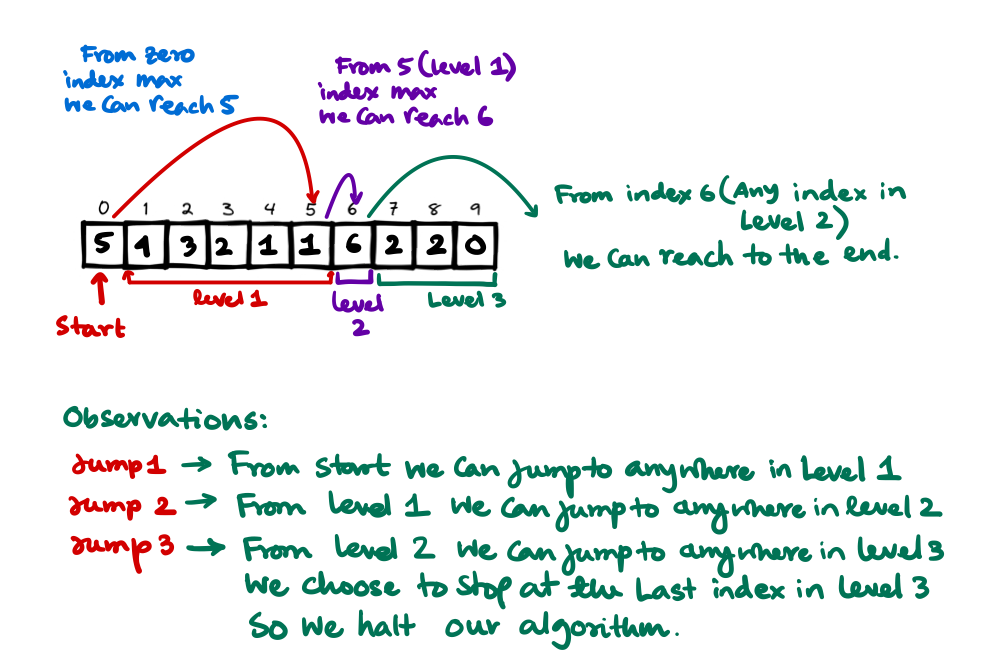 From zero
index max
we can reach 5
From 5 (level 1)
index max
we can reach 6
From index 6 (Any index in
Level 2)
we can reach to the end.
0 1 2 3 4 5 6 7 8 9
5 4 3 2 1 1 6 2 2 0
level 1
level
2
Level 3
Start
Observations:
Jump 1 → From start we can jump to anywhere in Level 1
Jump 2 → From level 1 we can jump to anywhere in level 2
Jump 3 → From level 2 we can jump to anywhere in level 3
we choose to stop at the Last index in level 3
So we halt our algorithm.